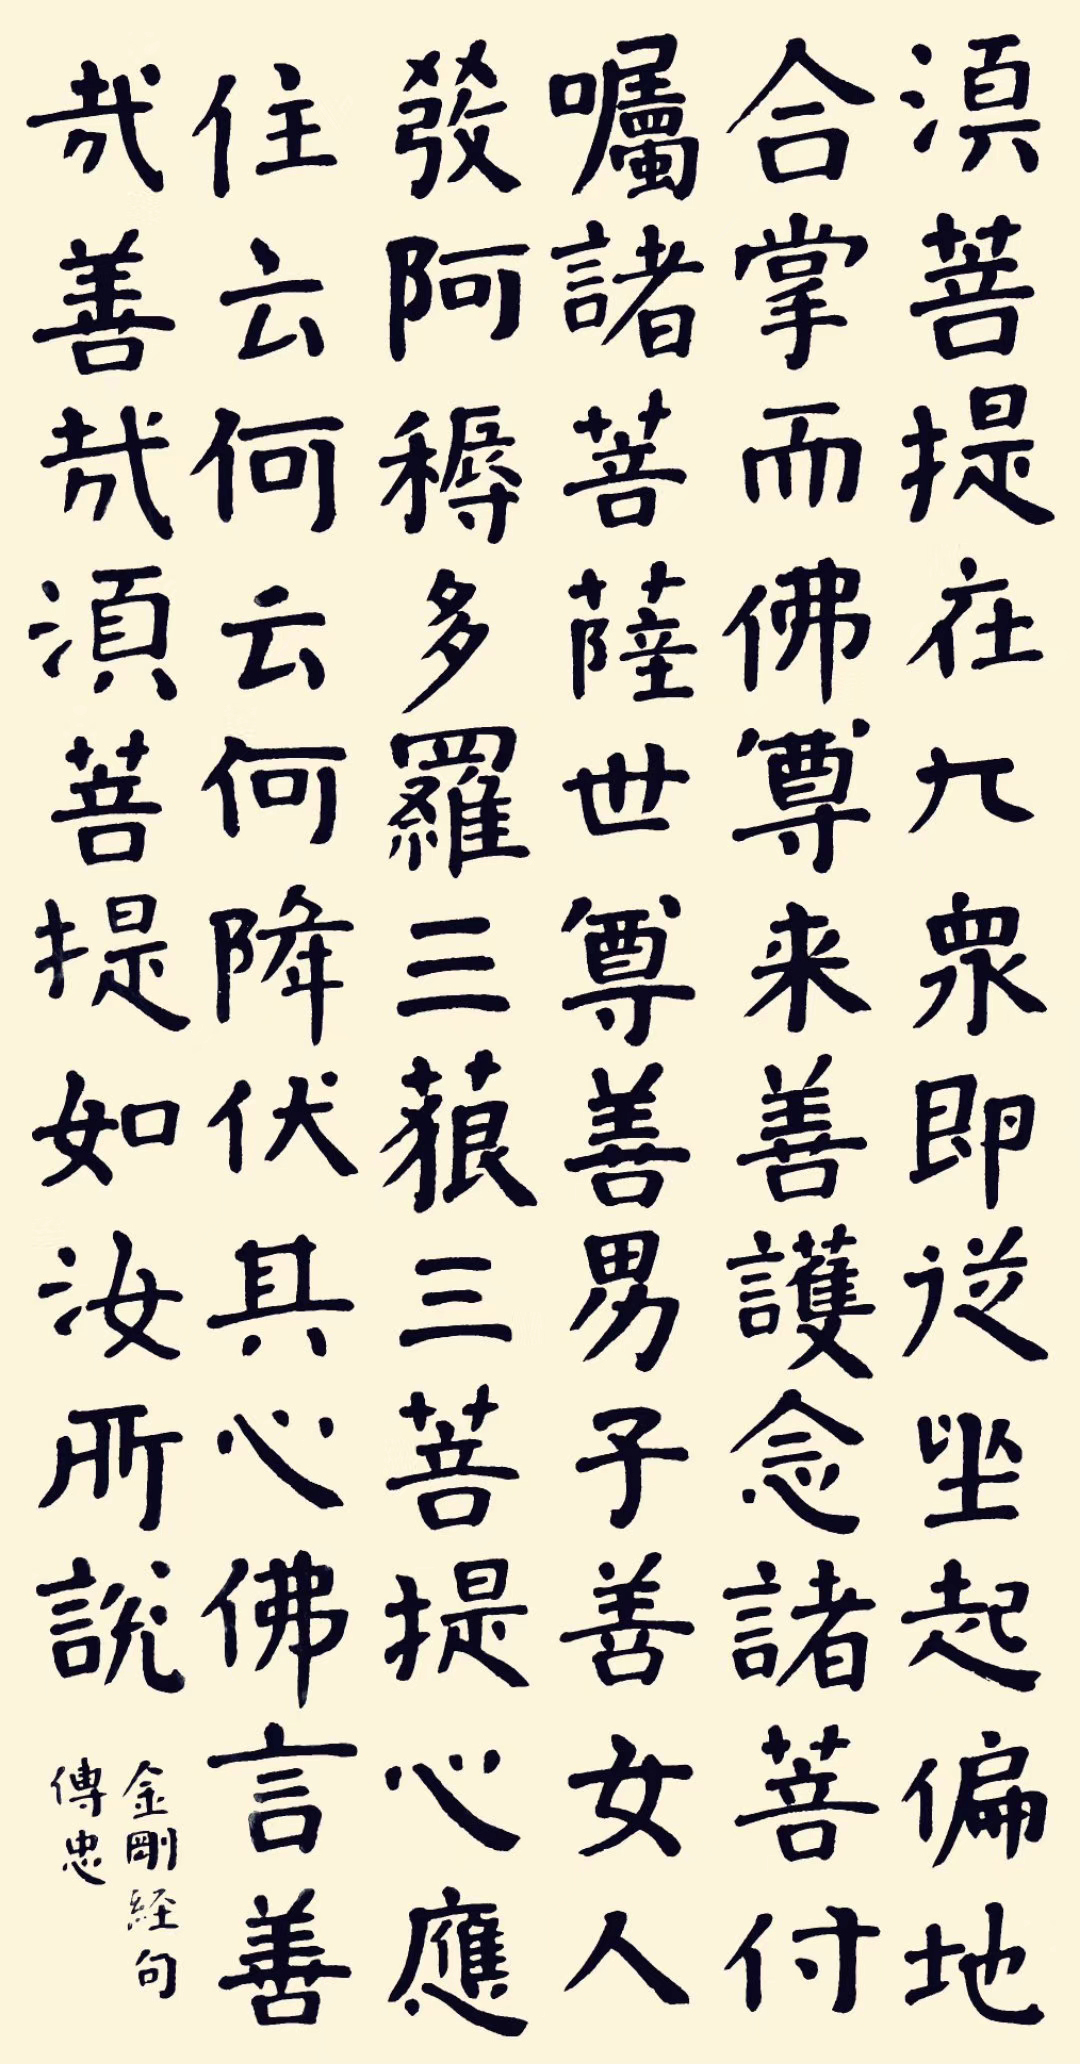 湏菩提在大眾即從坐起偏地
合掌而佛尊来善護念諸菩付
囑諸菩薩世尊善男子善女人
發阿耨多羅三藐三菩提心應
住云何云何降伏其心佛言善
哉善哉湏菩提如汝所説
金剛経句
傳忠